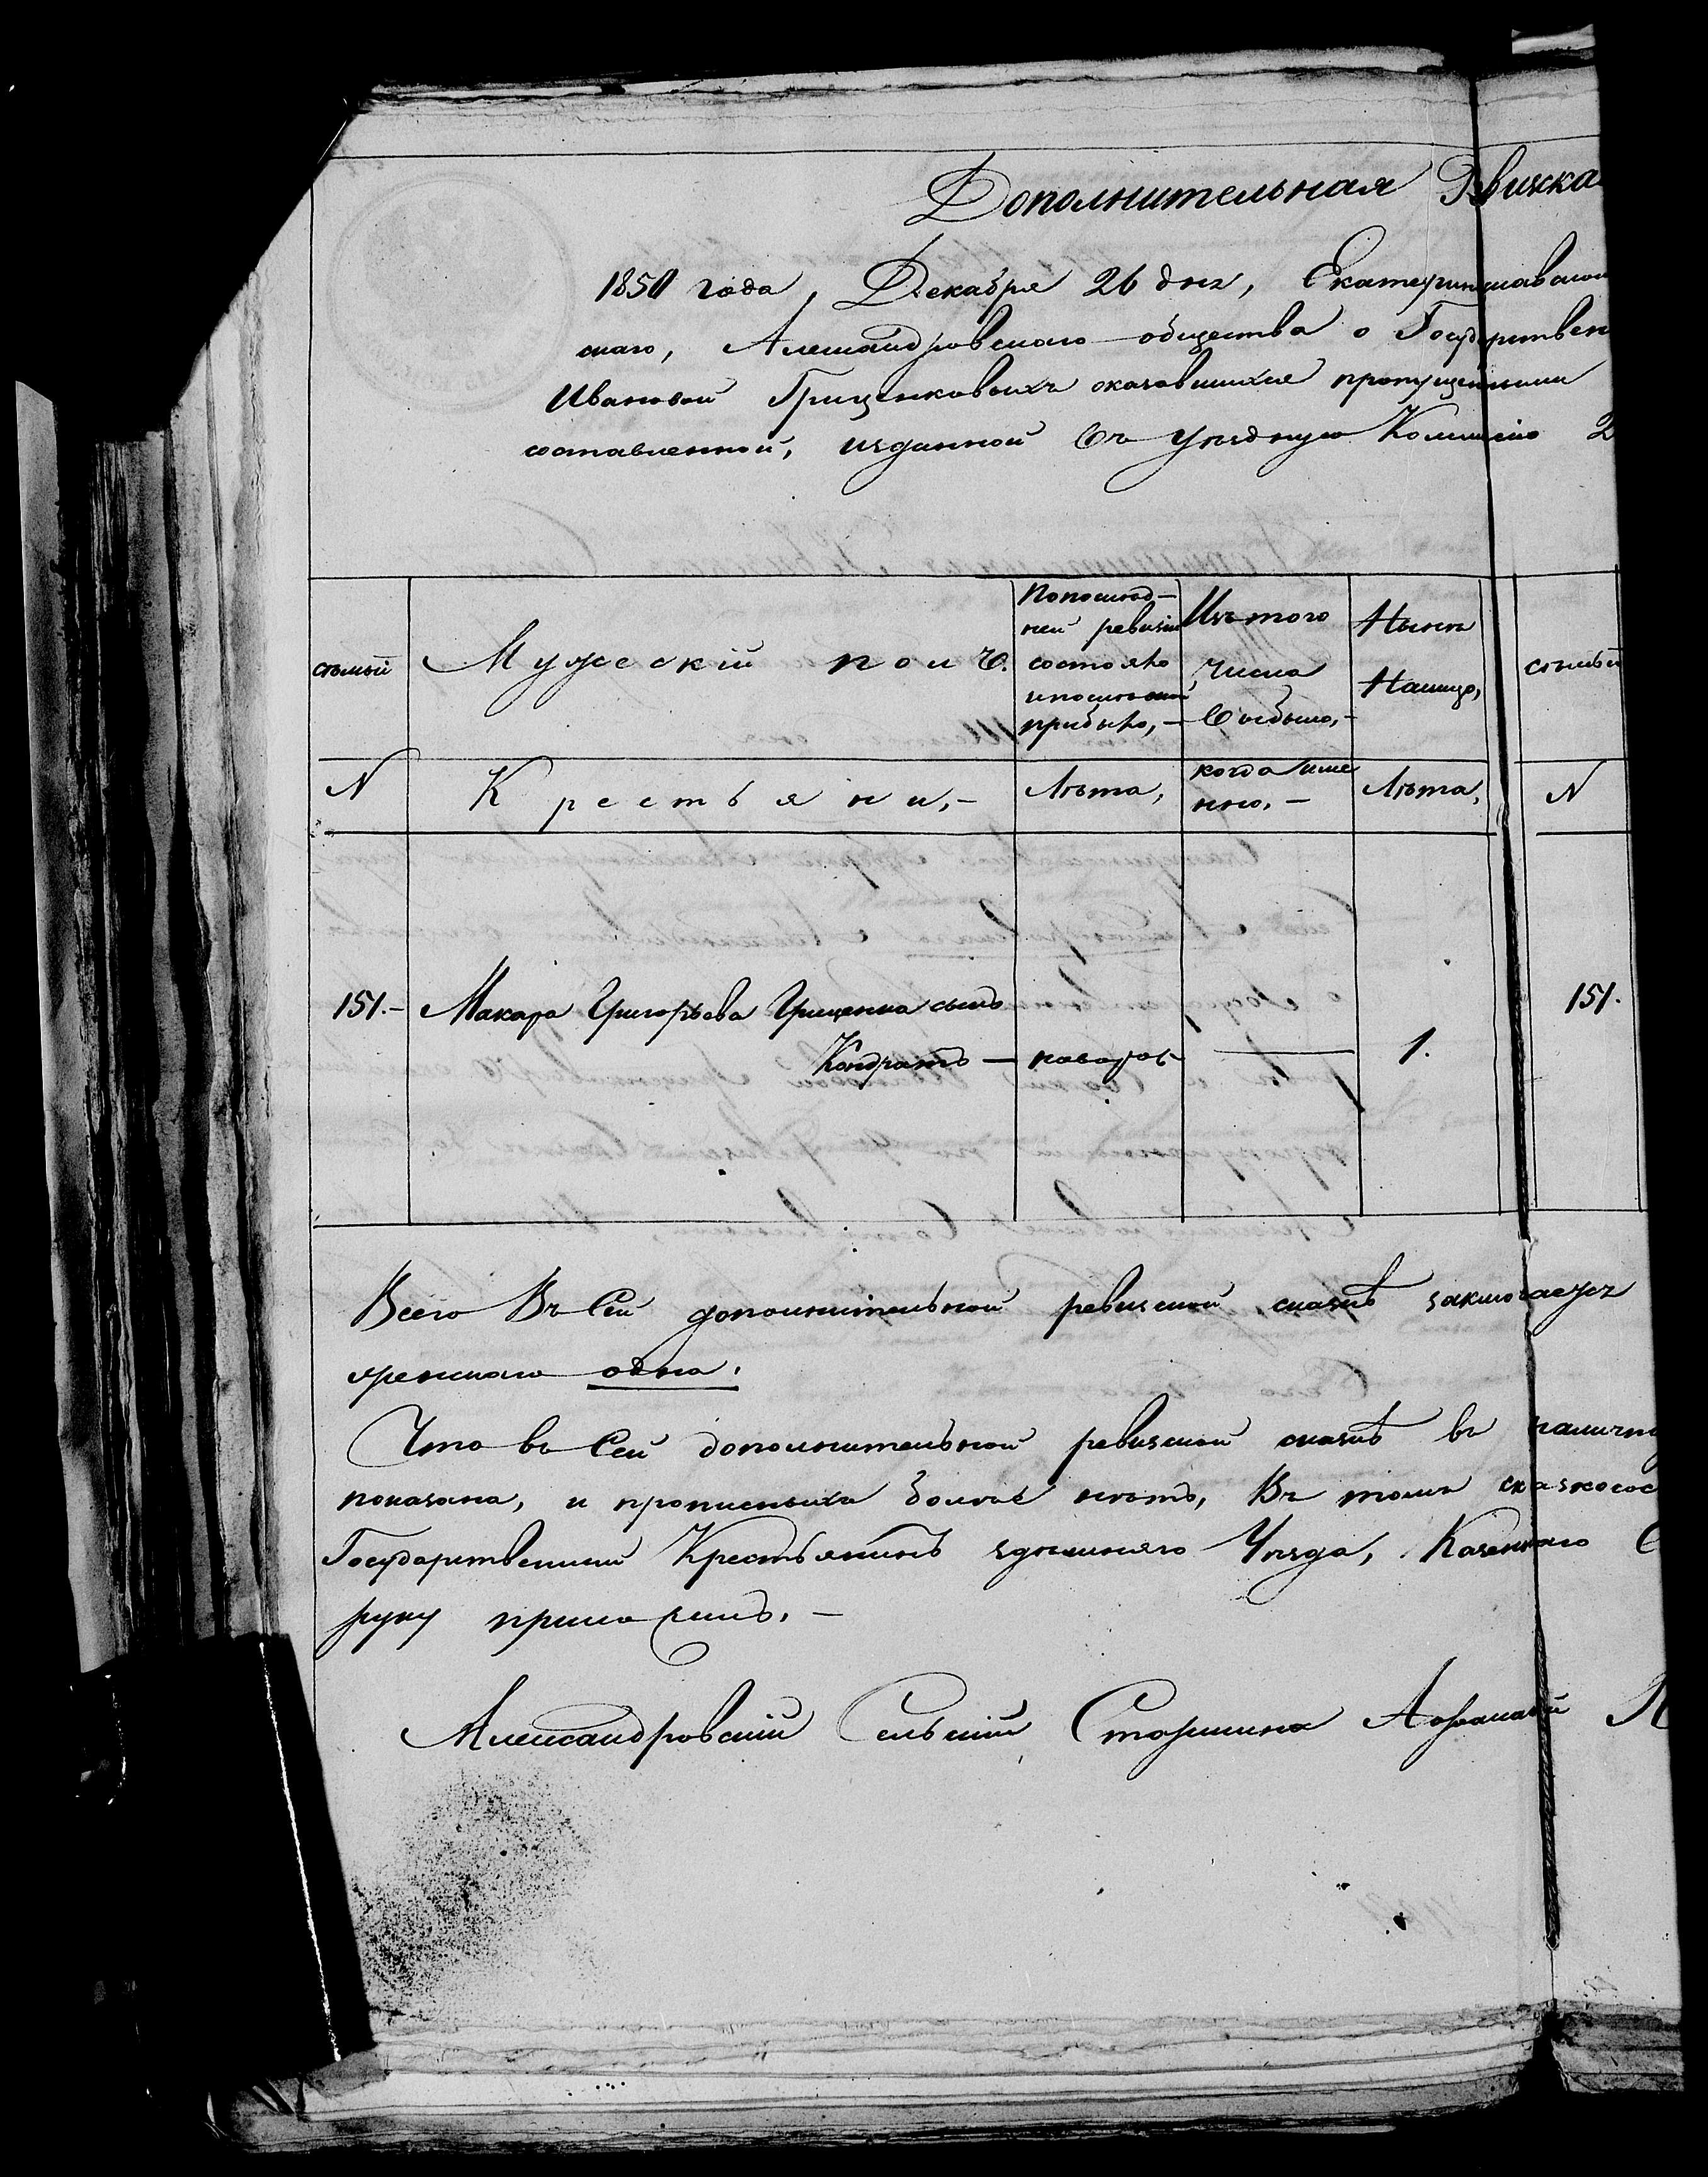 Дополнительная Ревизска
1850 года, Декабря 26 дня, Екатеринославской
скаго, Александровскаго общества о Государствен
Ивановой Гриценковыхъ оказавшихся пропущенными
составленной, изданной въ Уѣздную Комисію 2
семьи
Мужескій полъ.
По послѣд-
ней ревизіи
состояло
и после оной
прибыло,-
Изъ того
числа
выбыло,-
Нынѣ
На лицо,
семьи
N
Крестьяни,-
Лѣта,
когда име
нно,-
Лѣта,
N
151.- Макара Григорьева Гриценка сынъ
Кондратъ — новорож — 1.
151.
Всего Въ Сей дополнительной ревизской сказкѣ заключается
женскаго одна.
Что въ Сей дополнительной ревизской сказкѣ въ налично
показана, и прописныхъ болѣе нѣтъ, Въ томъ сказкосос
Государственный Крестьянинъ здѣшняго Уѣзда, Казеннаго С
руку приложилъ.-
Александровскій Сельскій Старшина Афанасій